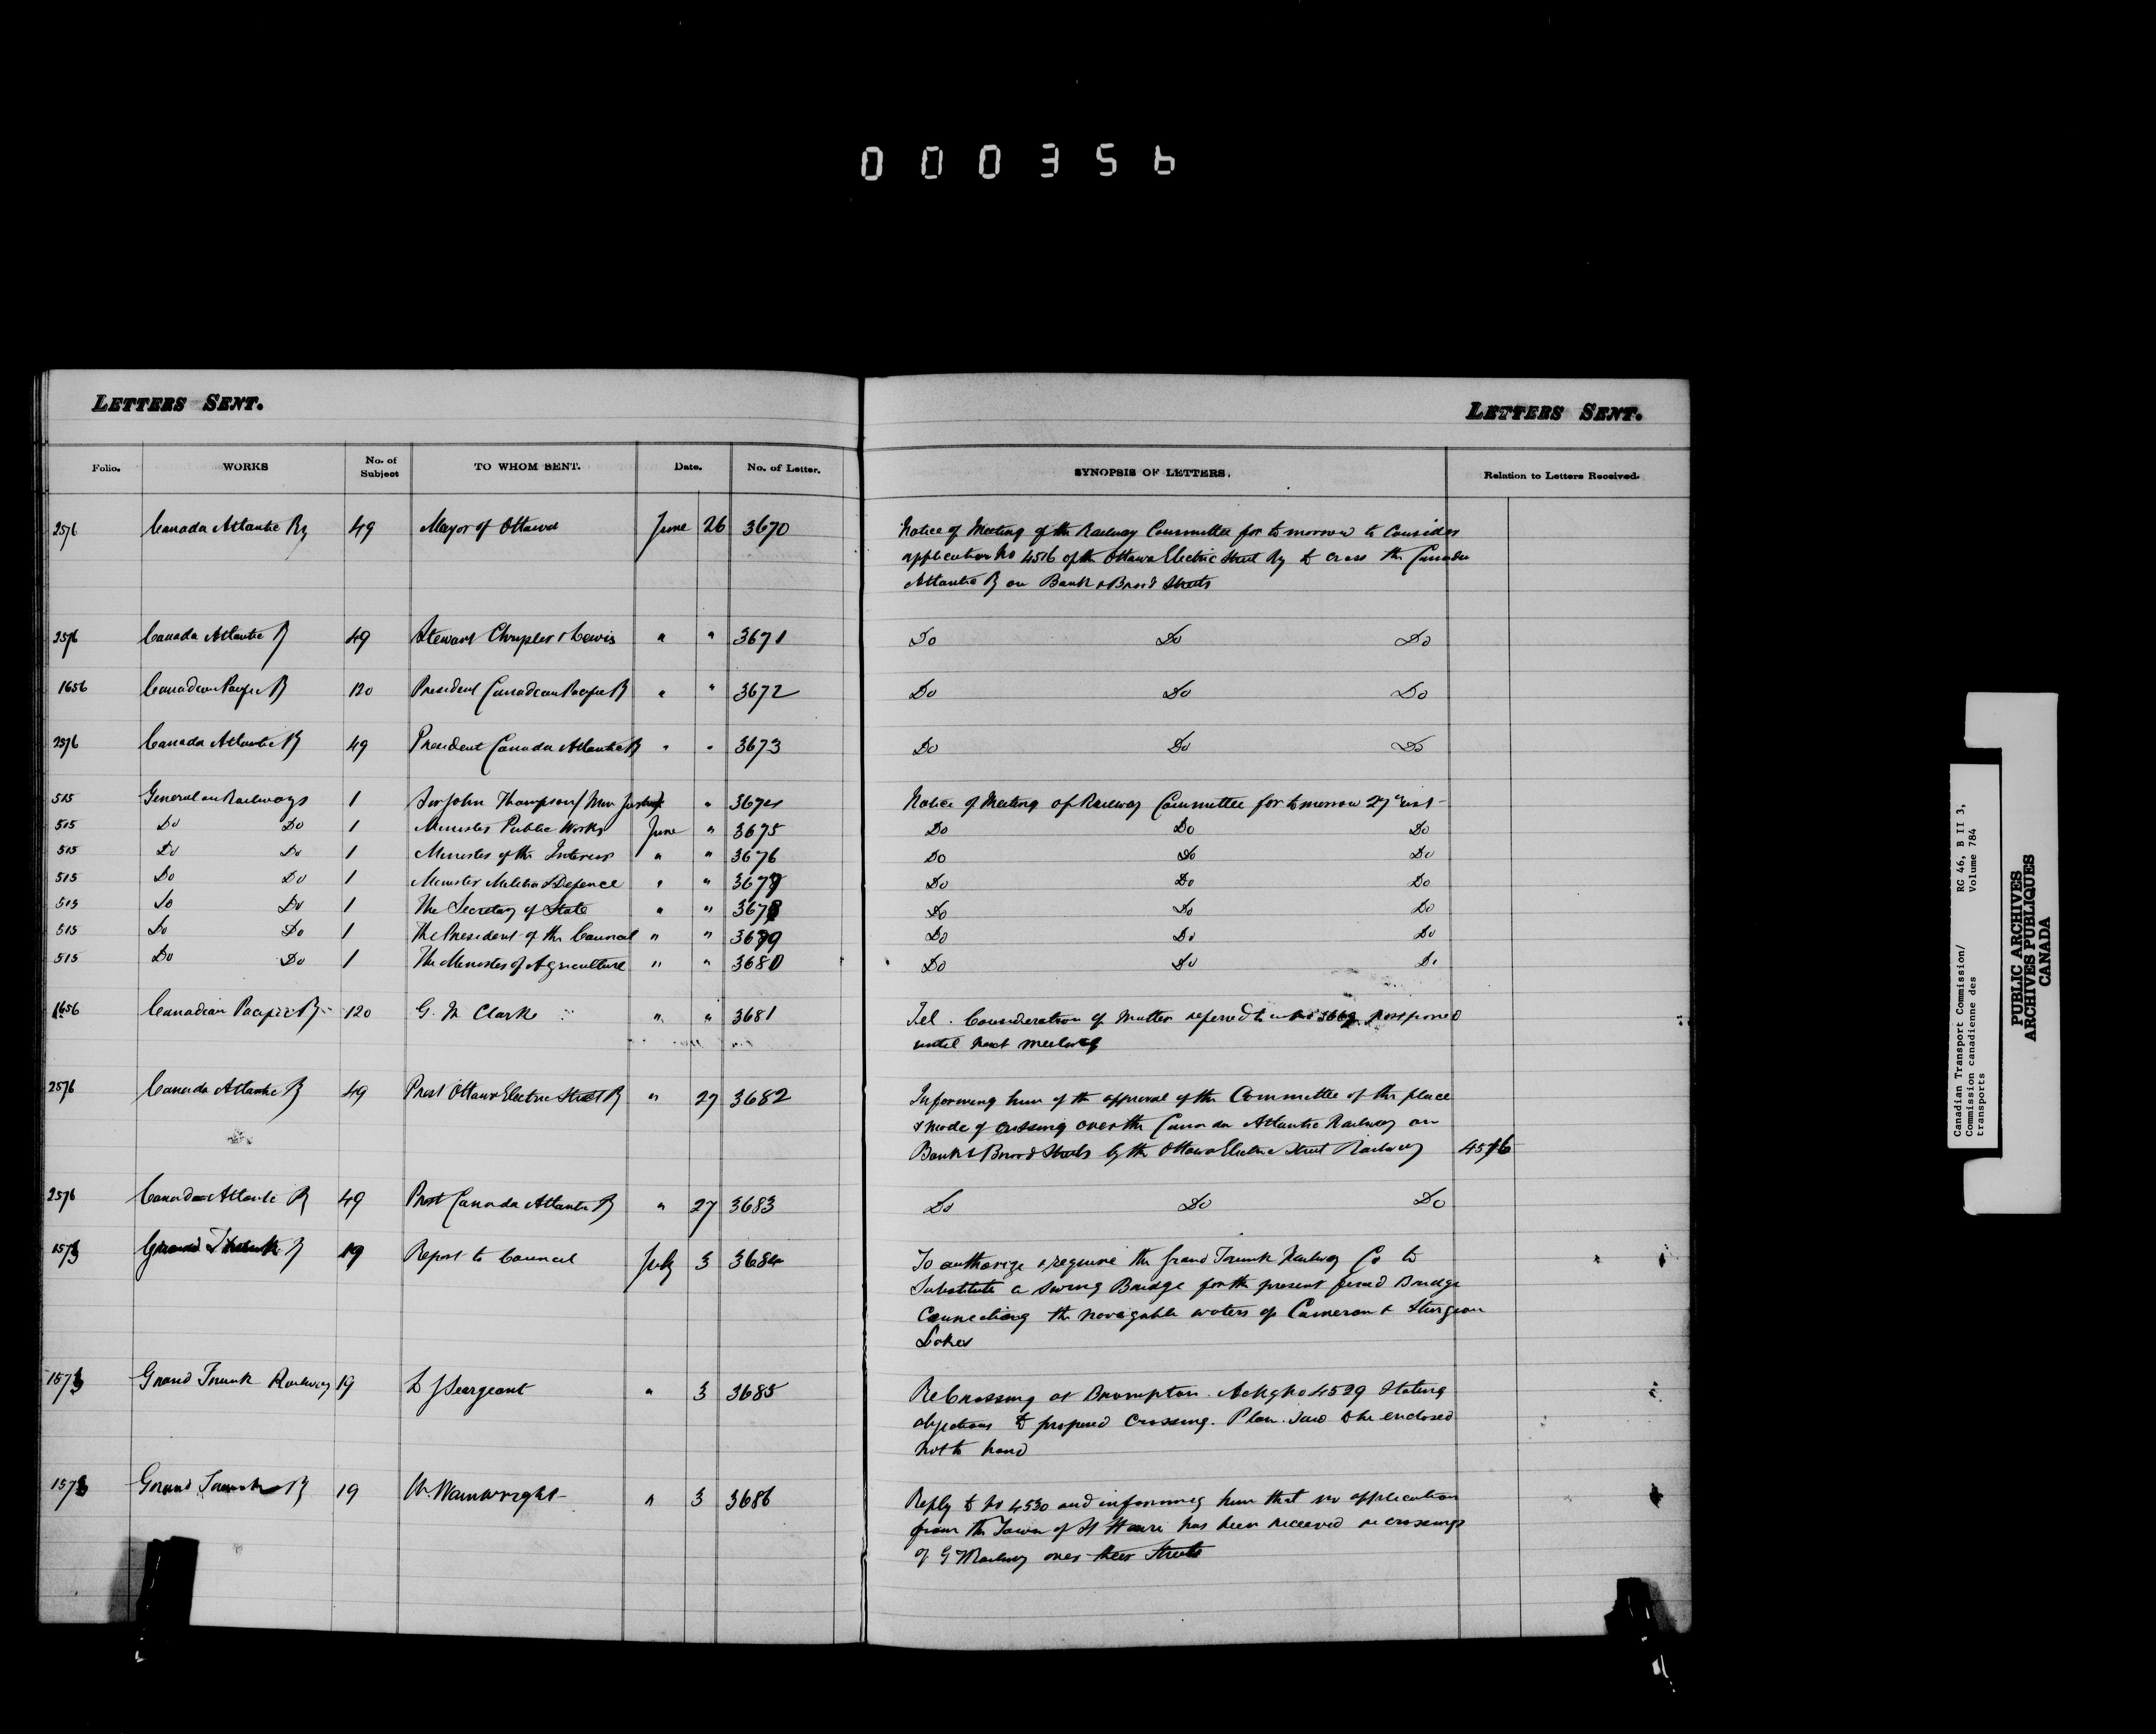 000356
LETTERS SENT.
LETTERS SENT.
Folio. WORKS No. of Subject TO WHOM SENT. Date. No. of Letter. SYNOPSIS OF LETTERS. Relation to Letters Received.
2576 Canada Atlantic Ry 49 Mayor of Ottawa June 26 3670 Notice of Meeting of the Railway Committee for tomorrow to consider
application No 4516 of the Ottawa Electric Street Ry to cross the Canada
Atlantic R on Bank & Broad Streets
2576 Canada Atlantic R 49 Stewart Chrysler & Lewis " " 3671 Do Do Do
1656 Canadian Pacific R 120 President Canadian Pacific R " " 3672 Do Do Do
2576 Canada Atlantic R 49 President Canada Atlantic R " " 3673 Do Do Do
515 General on Railways 1 Sir John Thompson / Min Justice " 3674 Notice of Meeting of Railway Committee for tomorrow 27th inst
515 Do Do 1 Minister Public Works June " 3675 Do Do Do
515 Do Do 1 Minister of the Interior " " 3676 Do Do Do
515 Do Do 1 Minister Militia & Defence " " 3677 Do Do Do
515 Do Do 1 The Secretary of State " " 3678 Do Do Do
515 Do Do 1 The President of the Council " " 3679 Do Do Do
515 Do Do 1 The Minister of Agriculture " " 3680 Do Do Do
1656 Canadian Pacific Ry 120 G. M Clark " " 3681 Tel. Consideration of Matter referred to in No 3669 postponed
until next meeting
2576 Canada Atlantic R 49 Prest Ottawa Electric Street R " 27 3682 Informing him of the approval of the Committee of the place
& mode of crossing over the Canada Atlantic Railway on
Bank & Broad Streets by the Ottawa Electric Street Railway 4516
2576 Canada Atlantic R 49 Prest Canada Atlantic R " 27 3683 Do Do Do
1573 Grand Trunk R 19 Report to Council July 3 3684 To authorize & require the Grand Trunk Railway Co to
Substitute a swing Bridge for the present fixed Bridge
Connecting the navigable waters of Cameron & Sturgeon
Lakes
1573 Grand Trunk Railway 19 L J Seargeant " 3 3685 Re Crossing at Brampton. Ackg No 4529 Stating
objections to proposed Crossing. Plan said to be enclosed
not to hand
1573 Grand Trunk R 19 W. Wainwright " 3 3686 Reply to No 4530 and informing him that no application
from the Town of St Henri has been received re crossings
of G T Railway over their Streets
Canadian Transport Commission/ RG 46, B II 3,
Commission canadienne des Volume 784
transports
PUBLIC ARCHIVES
ARCHIVES PUBLIQUES
CANADA